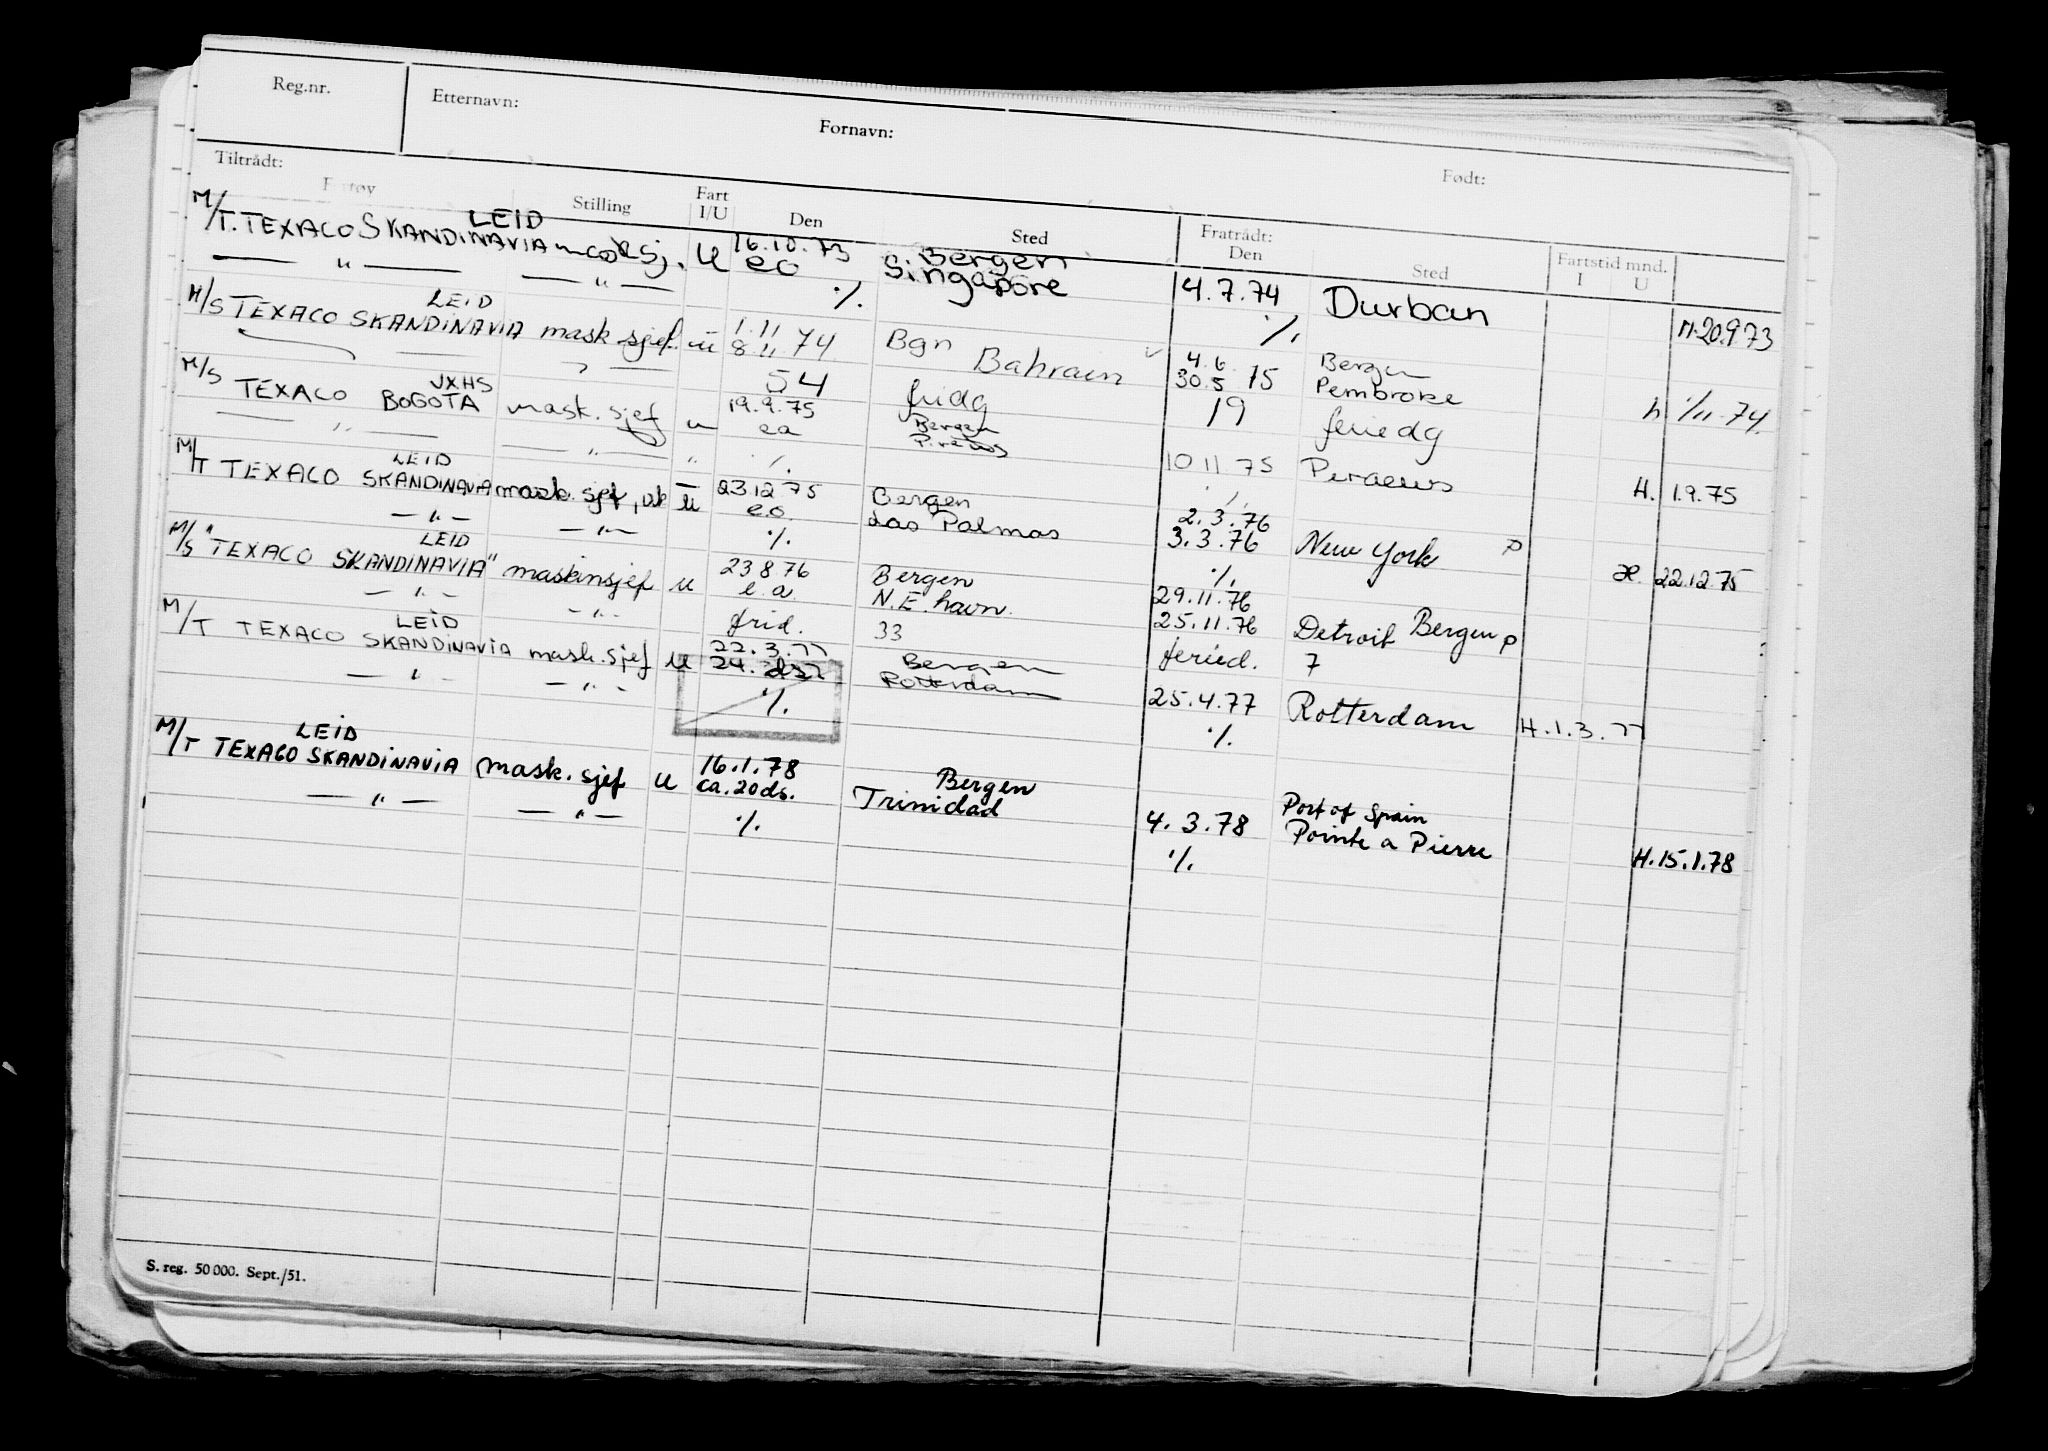 Reg.nr. Etternavn: Fornavn: Født:
Tiltrådt: Fratrådt:
Stilling Fart I/U Den Sted Den Sted Fartstid mnd. I U
LEID
M/T. TEXACO SKANDINAVIA U 16.10.73 Bergen
— " — — " — eo Singapore 4.7.74 Durban
·/. ·/. M.20.9.73
LEID
M/S TEXACO SKANDINAVIA mask sjef. u 1.11 Bgn 4.6. Bergen
8.11 74 Bahrain 30.5 75 Pembroke
54 fridg 19 feriedg h 1/11.74.
JXHS
M/S TEXACO BOGOTA mask. sjef u 19.9.75 Bergen
— " — — " — " ea Pireus 10.11.75 Peraeus
·/. ·/. H. 1.9.75
LEID
M/T TEXACO SKANDINAVIA mask. sjef, u 23.12.75 Bergen 2.3.76
— " — — " — e.o. Las Palmas 3.3.76 New York p
·/. ·/. 22.12.75
LEID
M/S "TEXACO SKANDINAVIA" maskinsjef u 23.8.76 Bergen 29.11.76 Bergen p
— " — — " — e.a. N.E. havn. 25.11.76 Detroit
frid. 33 feried. 7
LEID
M/T TEXACO SKANDINAVIA mask. sjef u 22.3.77 Bergen
— " — — " — 24. ds Rotterdam 25.4.77 Rotterdam
·/. ·/. H.1.3.77
LEID
M/T TEXACO SKANDINAVIA mask. sjef u 16.1.78 Bergen Port of Spain
— " — — " — ca. 20 ds. Trinidad 4.3.78 Pointe a Pierre
·/. ·/. H.15.1.78
S. reg. 50 000. Sept./51.